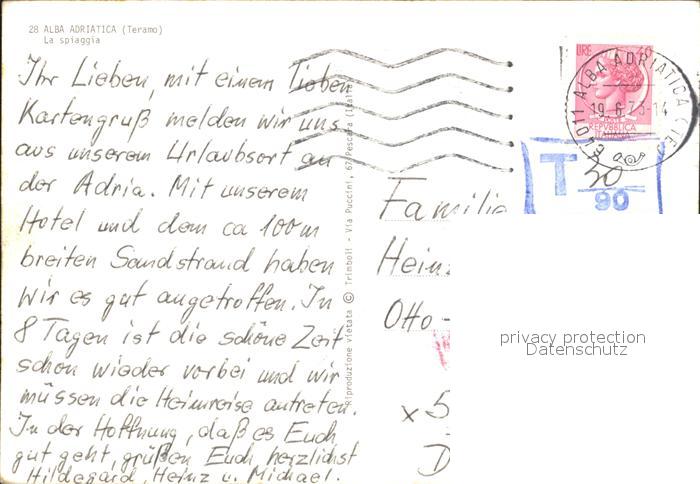 28 ALBA ADRIATICA (Teramo)
La spiaggia
Ihr Lieben, mit einem lieben
Kartengruß melden wir uns
aus unserem Urlaubsort an
der Adria. Mit unserem
Hotel und dem ca 100m
breiten Sandstrand haben
wir es gut angetroffen. In
8 Tagen ist die schöne Zeit
schon wieder vorbei und wir
müssen die Heimreise antreten.
In der Hoffnung, daß es Euch
gut geht, grüßen Euch herzlichst
Hildegard, Heinz u. Michael.
Riproduzione vietata © Trimboli - Via Puccini, 67 Pescara (Italia)
LIRE 40
REPVBBLICA
ITALIANA
64011 ALBA ADRIATICA (TE)
19.6.73-14
T 30
90
Familie
Hein
Otto-
x 5
D
privacy protection
Datenschutz